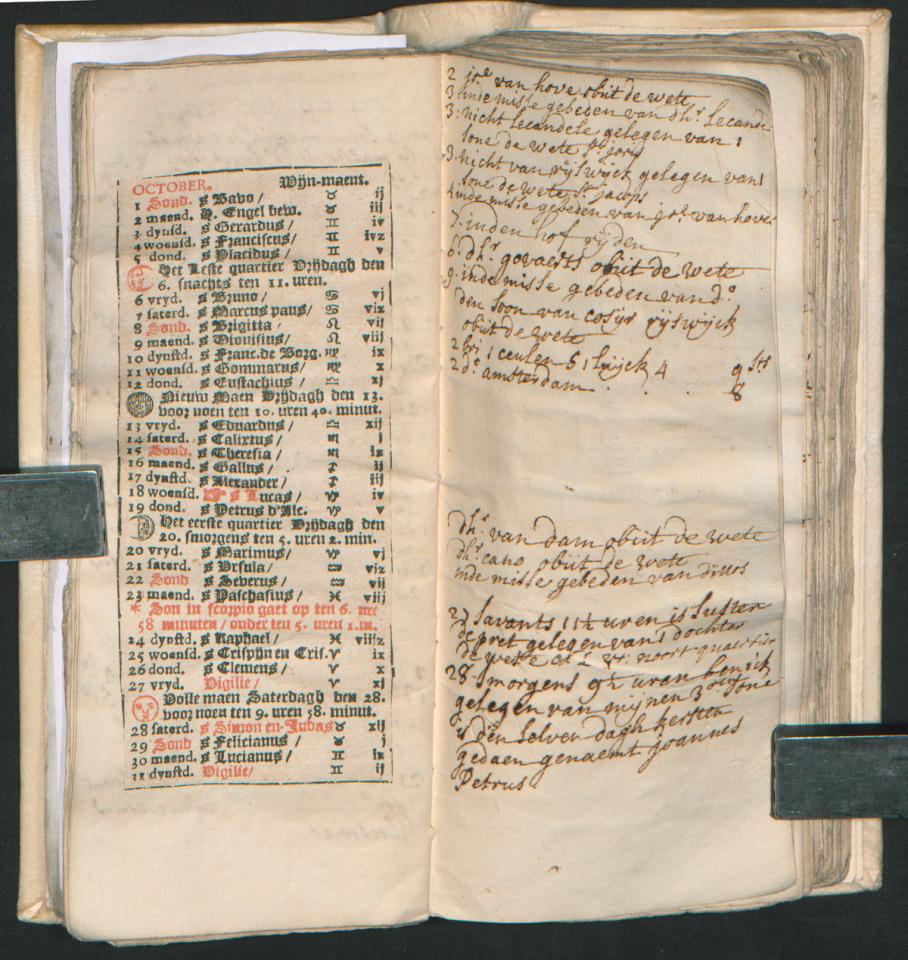 OCTOBER. Wijn-maent.
1 Sond. S Bavo / ♉ ij
2 maend. H. Engel bew. ♉ iij
3 dynsd. S Gerardus / ♊ iv
4 woensd. S Franciscus / ♊ ivz
5 dond. S Placidus / ♊ v
Het leste quartier Vrijdagh den
6. snachts ten 11. uren.
6 vryd. S Bruno / ♋ vj
7 saterd. S Marcus paus / ♋ viz
8 Sond. S Brigitta / ♌ vij
9 maend. S Dionisius / ♌ viij
10 dynstd. S Franc. de Borg. ♍ ix
11 woensd. S Gommarus / ♍ x
12 dond. S Eustachius / ♎ xj
Nieuw Maen Vrijdagh den 13.
voor noen ten 10. uren 40. minut.
13 vryd. S Eduardus / ♎ xij
14 saterd. S Calixtus / ♏ j
15 Sond. S Theresia / ♏ ix
16 maend. S Gallus / ♐ ij
17 dynstd. S Alexander / ♐ iij
18 woensd. S Lucas / ♑ iv
19 dond. S Petrus d'Alc. ♑ v
Het eerste quartier Vrijdagh den
20. smorgens ten 5. uren 2. min.
20 vryd. S Maximus / ♑ vj
21 saterd. S Ursula / ♒ vij
22 Sond S Severus / ♒ vij
23 maend. S Paschasius / ♓ viij
* Son in scorpio gaet op ten 6. ure
58 minuten / onder ten 5. uren 1. m.
24 dynstd. S Raphael / ♓ viijz
25 woensd. S Crispyn en Cris. ♈ ix
26 dond. S Clemens / ♈ x
27 vryd. Vigilie / ♈ xj
Volle maen Saterdagh den 28.
voor noen ten 9. uren 58. minut.
28 saterd. S Simon en Judas ♉ xij
29 Sond S Felicianus / ♉ j
30 maend. S Lucianus / ♊ ix
31 dynstd. Vigilie / ♊ ij
2 joe van hove obiit de wete
3 inde misse gebeden van dhr. Lecande
3: nicht Lecandele gelegen van 1
sone de wete st. joris
3. nicht van rijswijck gelegen van 1
sone de wete st. jacops
4 inde misse gebeden van joe. van hove
5. inden hof
6. dhr. govaerts obiit de wete
9. inde misse gebeden van do
den soon van rijswijck
obiit de wete
2 bri 1 ceulen 5 1 luijck 4 9 sts
2 do amsterdam . . . 8
dhr. van dam obiit de wete
dhr. cano obiit de wete
inde misse gebeden van
27 savants 11 ½ uren is suster
de pret gelegen van 1 dochter
de wete noort quartier
28 smorgens 9 ½ uren ben ick
gelegen van mijnen 3 sone
den selven dagh kersten
gedaen genaemt joannes
Petrus